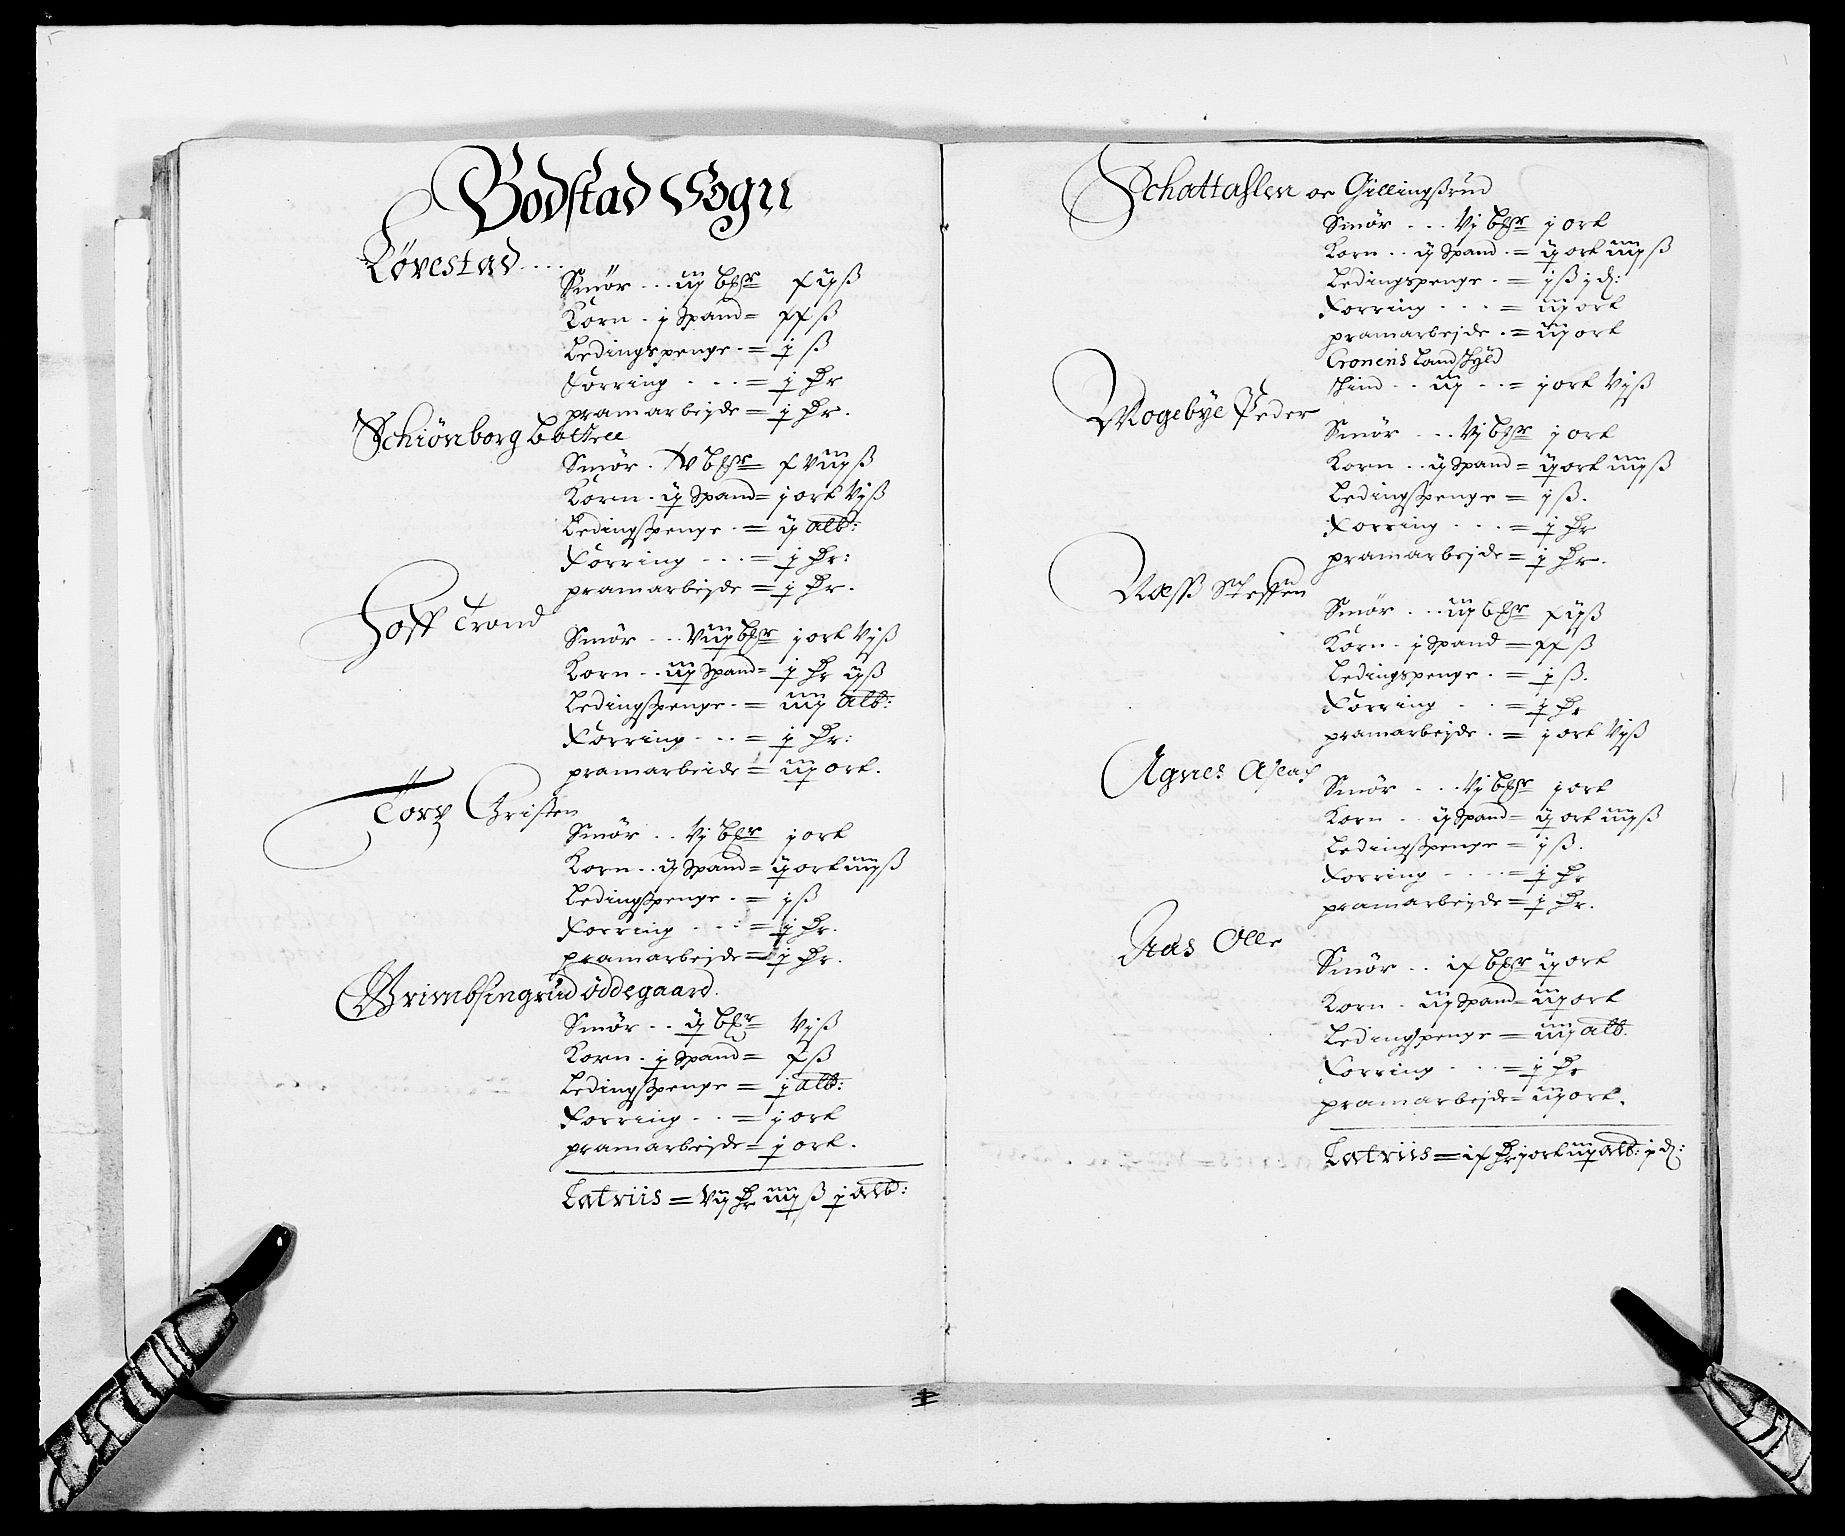 Bodstad Sogn
Løvestad....
Smör ... iiij bßr x ijß
Korn . j Spand = xx ß
Ledingspenge . = j ß
Forring . . . = j Dr
pramarbejde = j Dr.
Schiönborg
Smör . xv bßr = x viiijß
Korn . ij Spand = j ort vjß
Ledingspenge . = ij alb:
Forring ... = j Dr:
pramarbejde = j Dr.
Hoff Trond
Smör ... viiij bßr j ort vjß
Korn .. iiij Spand = j Dr ijß
Ledingspenge . = iiij alb:
Forring . .. = j Dr:
pramarbeide = iij ort.
Törp Christen
Smör .. vj bßr j ort
Korn .. ij Spand = ij ort iiijß
Ledingspenge . = jß
Forring ... = j Dr.
pramarbejde = j Dr.
Grimbsingrud öddegaard.
Smör .. ij bßr vjß
Korn . j Spand = xß
Ledingspenge = j alb:
Forring .. = j ort
pramarbejde = j ort.
Latriis = vij Dr iiij ß j alb:
Schattahlen oc Gillingsrud
Smör ... vj bßr j ort
Korn .. ij Spand . = ij ort iiijß
Ledingspenge . = jß j d:
Forring . . . = iij ort
pramarbejde . = iij ort
Cronens Landskyld
skind .. iiij .. = j ort vjß
Mogebye Peder
Smör ... vj bßr j ort
Korn .. ij Spand = ij ort iiijß
Ledingspenge = jß.
Forring ... = j Dr
pramarbejde = j Dr.
Næss
Smör ... iiij bßr x ijß
Korn . j Spand = xx ß
Ledingspenge . = jß.
Forring . . = j Dr
pramarbejde . = j ort vjß
Agnes Aslach
Smör ... vj bßr j ort
Korn .. ij Spand = ij ort iiijß
Ledingspenge = jß.
Forring .... = j Dr
pramarbejde = j Dr.
Aas Olle
Smör .. ix bßr ij ort
Korn . iij Spand = iij ort
Ledingspenge = iiij alb.
Forring ... = j Dr
pramarbejde = iij ort.
Latriis = ix Dr j ort iiij alb: j d: